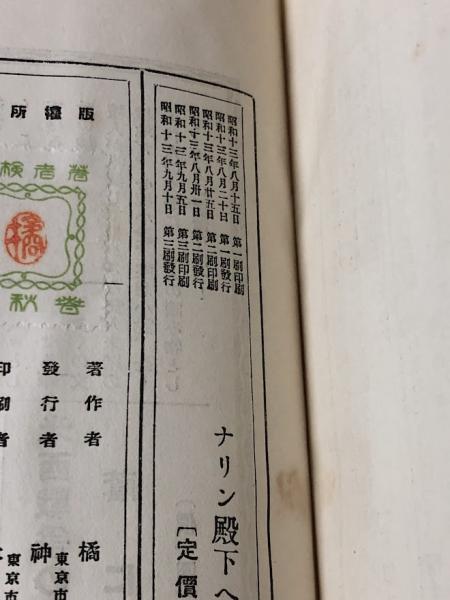 昭和十三年八月十五日 第一刷印刷
昭和十三年八月二十日 第一刷發行
昭和十三年八月廿五日 第二刷印刷
昭和十三年八月卅一日 第二刷發行
昭和十三年九月五日 第三刷印刷
昭和十三年九月十日 第三刷發行
ナリン殿下へ
[定價
版權所
著者檢
著作者 橘
發行者 東京市 神
印刷者 東京市